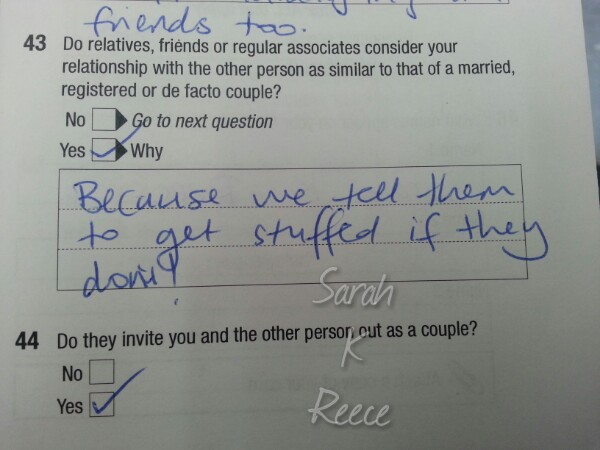 friends too.
43 Do relatives, friends or regular associates consider your
relationship with the other person as similar to that of a married,
registered or de facto couple?
No Go to next question
Yes Why
Because we tell them
to get stuffed if they
don't!
Sarah
44 Do they invite you and the other person out as a couple?
K
No
Yes
Reece